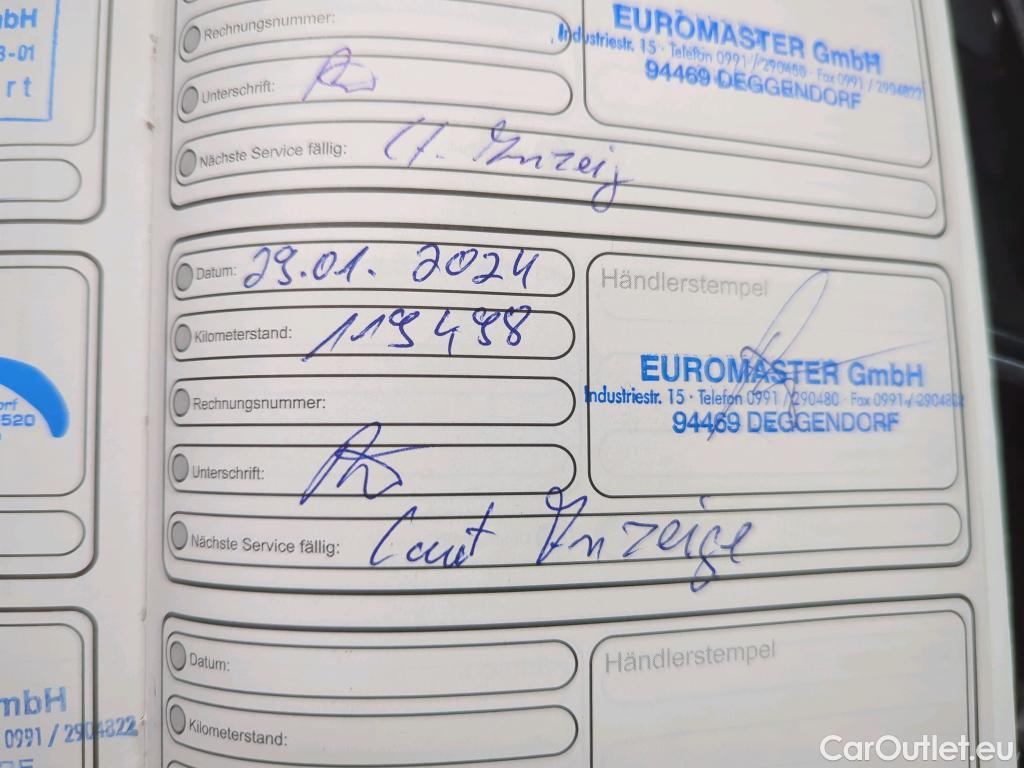 mbH
3-01
rt
Rechnungsnummer:
Unterschrift:
Nächste Service fällig: lt. Anzeig
EUROMASTER GmbH
Industriestr. 15 · Telefon 0991 / 290480 · Fax 0991 / 2904822
94469 DEGGENDORF
Datum: 29.01. 2024
Kilometerstand: 119498
Rechnungsnummer:
Unterschrift:
Nächste Service fällig: Laut Anzeige
Händlerstempel
EUROMASTER GmbH
Industriestr. 15 · Telefon 0991 / 290480 · Fax 0991 / 290482
94469 DEGGENDORF
orf
520
mbH
0991 / 2904822
Datum:
Kilometerstand:
Händlerstempel
CarOutlet.eu